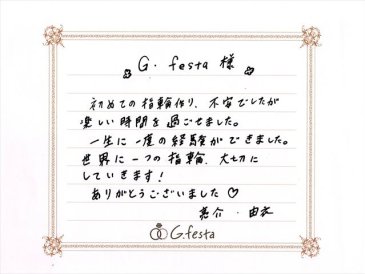 G. festa 様
初めての指輪作り、不安でしたが
楽しい時間を過ごせました。
一生に一度の経験ができました。
世界に一つの指輪、大切に
していきます！
ありがとうございました♡
亮介・由衣
G.festa